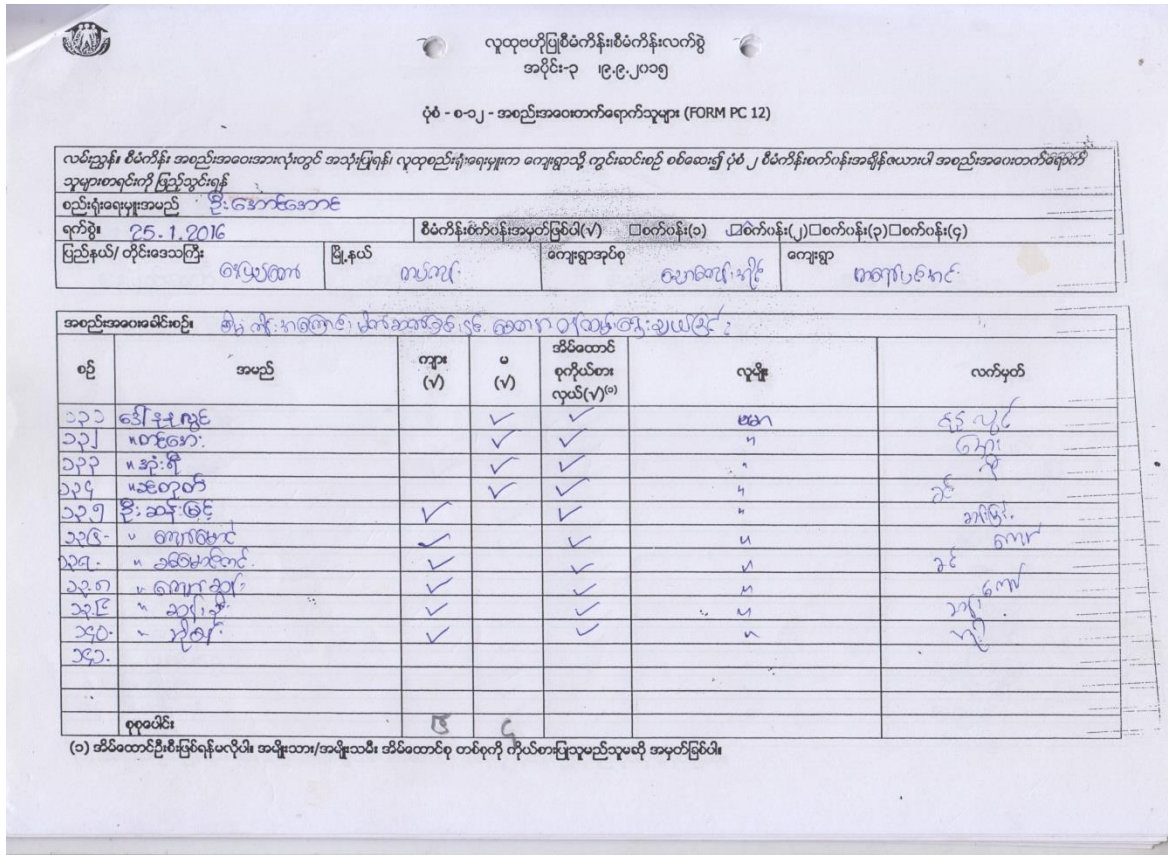 လူထုဗဟိုပြုစီမံကိန်း၊စီမံကိန်းလက်စွဲ
အပိုင်း-၃ ၊၉.၉.၂၀၁၅
ပုံစံ - စ-၁၂ - အစည်းအဝေးတက်ရောက်သူများ (FORM PC 12)
လမ်းညွှန်။ စီမံကိန်း အစည်းအဝေးအားလုံးတွင် အသုံးပြုရန်၊ လူထုစည်းရုံးရေးမှူးက ကျေးရွာသို့ ကွင်းဆင်းစဉ် စစ်ဆေး၍ ပုံစံ ၂ စီမံကိန်းစက်ဝန်းအချိန်ဇယားပါ အစည်းအဝေးတက်ရောက်
သူများစာရင်းကို ဖြည့်သွင်းရန်
စည်းရုံးရေးမှူးအမည် ဦးအောင်အောင်
ရက်စွဲ။ 25.1.2016 စီမံကိန်းစက်ဝန်းအမှတ်ဖြစ်ပါ(√) □စက်ဝန်း(၁) □စက်ဝန်း(၂)□စက်ဝန်း(၃)□စက်ဝန်း(၄)
ပြည်နယ်/ တိုင်းဒေသကြီး နေပြည်တော် မြို့နယ် တပ်ကုန်း ကျေးရွာအုပ်စု ကျေးရွာ
အစည်းအဝေးခေါင်းစဉ်။
စဉ် အမည် ကျား (√) မ (√) အိမ်ထောင်စုကိုယ်စားလှယ်(√)⁽¹⁾ လူမျိုး လက်မှတ်
၁၃၁ ဒေါ်နုနုလွင် ✓ ✓ ဗမာ နုနုလွင်
၁၃၂ " တင်အေး ✓ ✓ "
၁၃၃ " အုံးရီ ✓ ✓ "
၁၃၄ ✓ ✓ "
၁၃၅ ဦးဆန်းမြင့် ✓ ✓ " ဆန်းမြင့်
၁၃၆. " ကျော်မောင် ✓ ✓ " ကျော်
၁၃၇. " ခင်မောင်တင် ✓ ✓ " ခင်
၁၃၈ " ကျော်ဆန်း ✓ ✓ " ကျော်
၁၃၉ ✓ ✓ "
၁၄၀. ✓ ✓ "
၁၄၁.
စုစုပေါင်း ၆ ၄
(၁) အိမ်ထောင်ဦးစီးဖြစ်ရန်မလိုပါ။ အမျိုးသား/အမျိုးသမီး အိမ်ထောင်စု တစ်စုကို ကိုယ်စားပြုသူမည်သူမဆို အမှတ်ခြစ်ပါ။